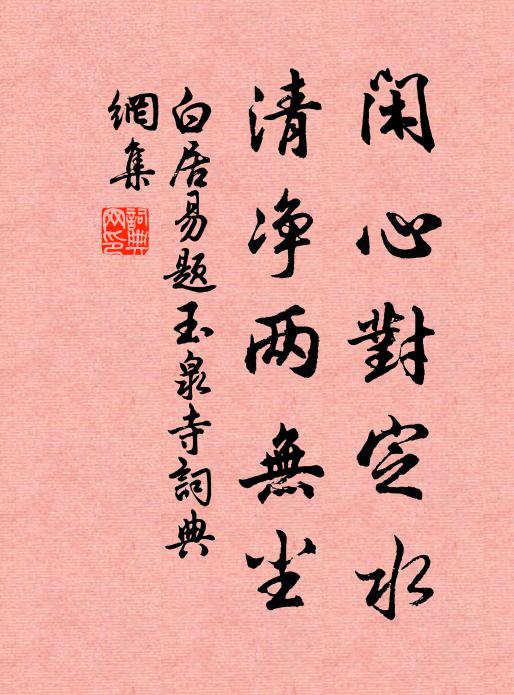 閑心對定水
清净两無尘
白居易題玉泉寺詞典
網集
詞典网印